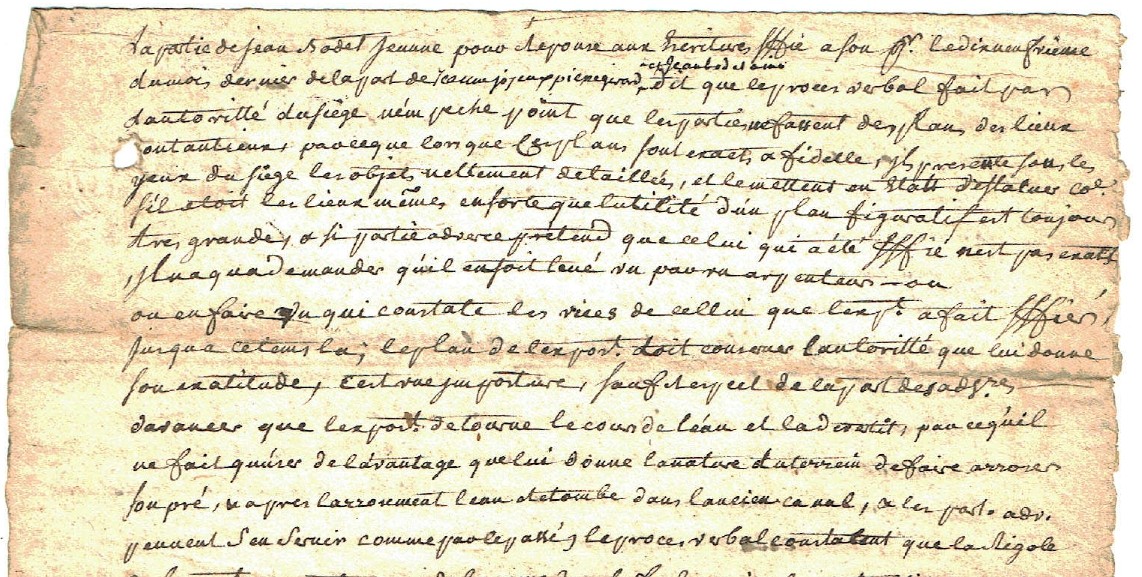 La partie de jean Rodet jeunne pour Reponse aux Ecritures sffié a son pr. le dixneufvieme
et jean bodet ainé
du mois dernier de la part de jeaume joseup pierre girard, dit que le proces verbal fait par
d'autoritté du siège n'empeche point que les parties ne fassent des plans des lieux
contantieux, parceque lorsque ces plans sont exacts & fidelle, ils presente sous les
yeux du siège les objets nettement detaillés, et le mettent en Etatt d'estatuer co.
s'il etoit les lieux mêmes ensorte que l'utilité d'un plan figuratif est toujours
tres grande, & si partie adverse prétend que celui qui a été sffié n'est pas exatt
, il n'a qu'a demander qu'il en soit levé un par un arpenteur - ou
ou en faire un qui constate les vices de cellui que l'exp.t a fait sffier,
jusqu'a ce tems la, le plan de l'expos.t doit conserver l'autoritté que lui donne
son exatitude, c'est une imposture, sauf Respect de la part des adv.res
d'avancer que l'expos.t detourne le cours de l'eau et la divertit, parce qu'il
ne fait qu'user de l'avantage que lui donne la nature du terrein de faire arroser
son pré, & apres l'arrosement l'eau Retombe dans l'ancien canal, & les part. adv.
peuvent s'en servir comme par le passé, le proces verbal constatent que la Rigole